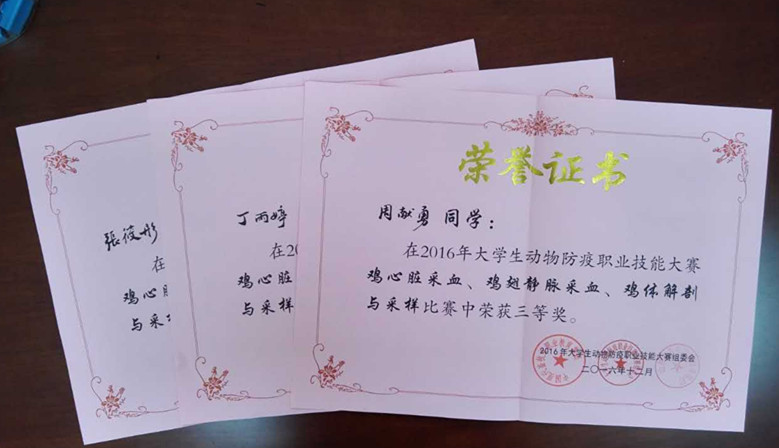 荣誉证书
周献勇 同学：
在2016年大学生动物防疫职业技能大赛
鸡心脏采血、鸡翅静脉采血、鸡体解剖
与采样比赛中荣获三等奖。
2016年大学生动物防疫职业技能大赛组委会
二〇一六年十二月
丁雨婷
在20
鸡心脏
与采样
张筱彤
在
鸡心
与采